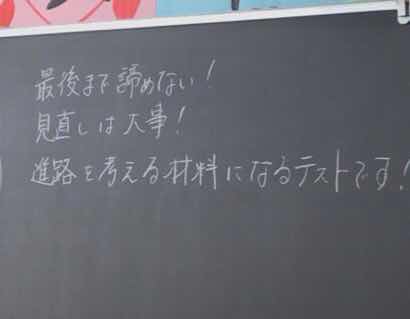 最後まで諦めない!
見直しは大事!
進路を考える材料になるテストです!